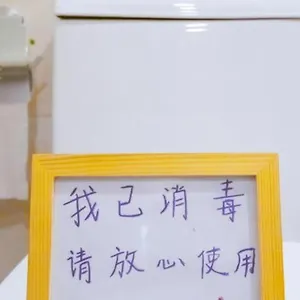 我已消毒
请放心使用